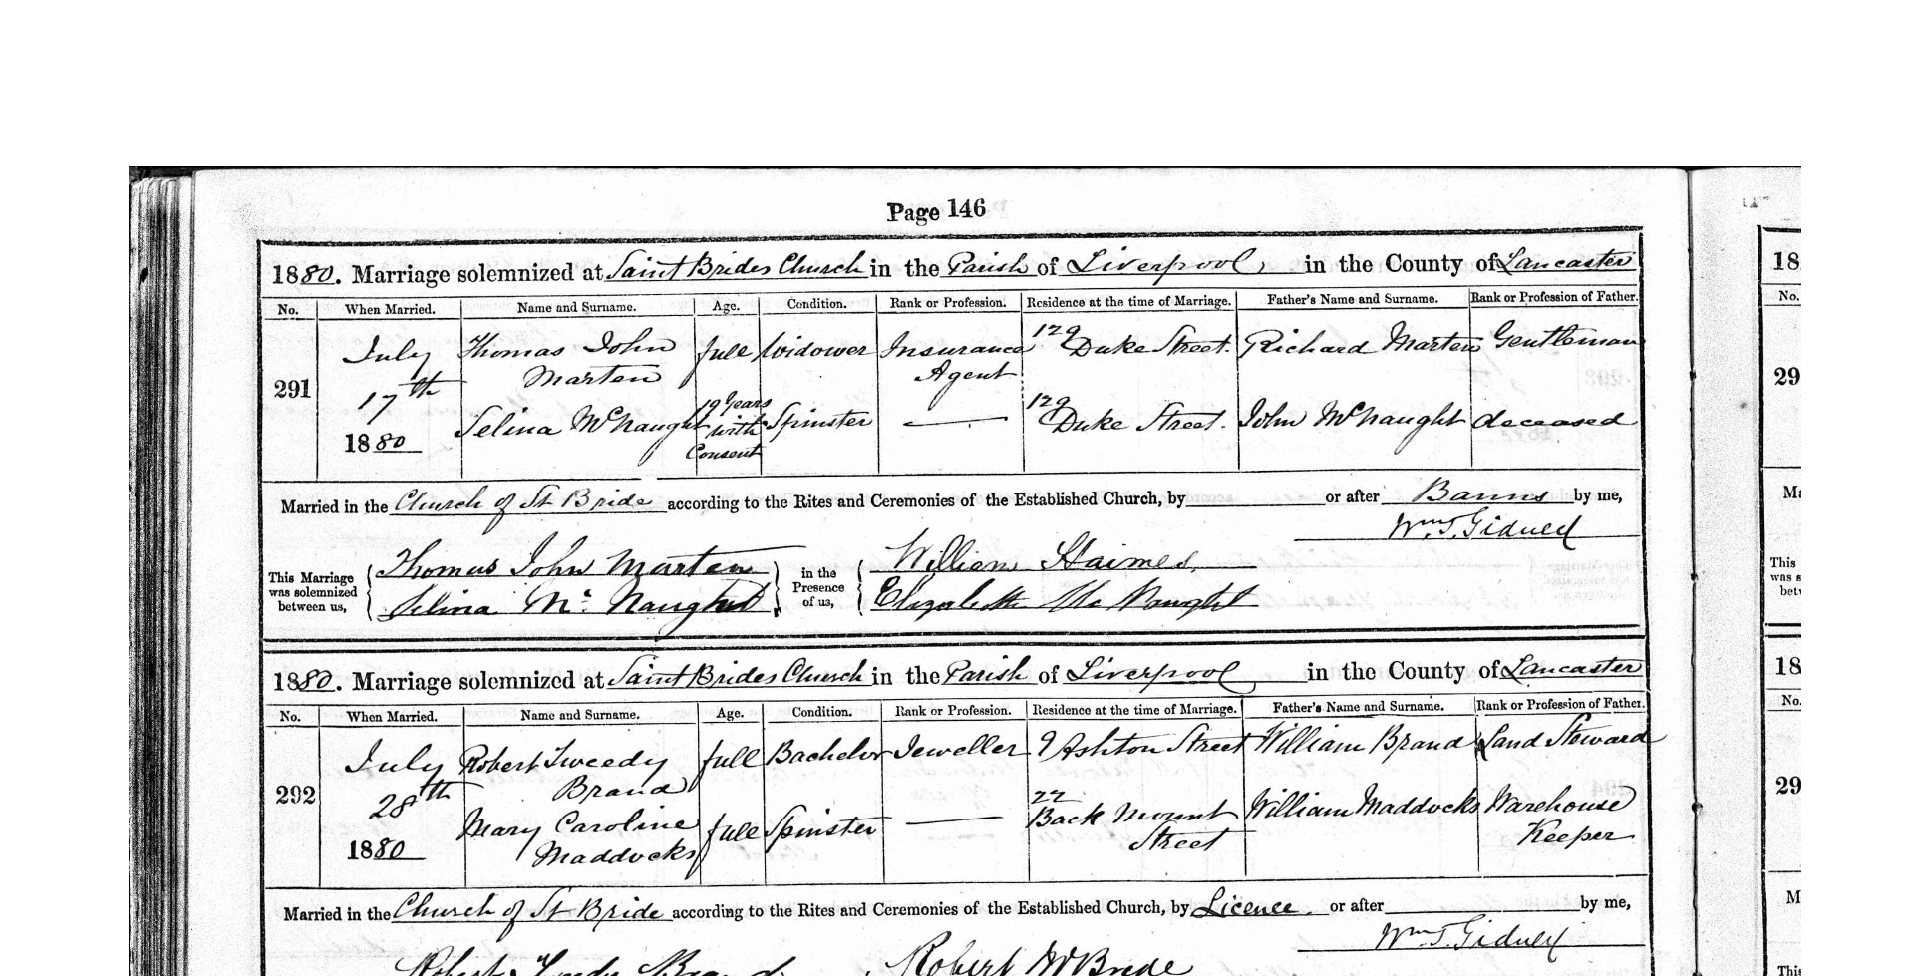 Page 146
1880. Marriage solemnized at Saint Brides Church in the Parish of Liverpool, in the County of Lancaster
No. When Married. Name and Surname. Age. Condition. Rank or Profession. Residence at the time of Marriage. Father's Name and Surname. Rank or Profession of Father.
291 July 17th 1880 Thomas John Marten full Widower Insurance Agent 129 Duke Street. Richard Marten Gentleman
Selina McNaught 19 Years with Consent Spinster — 129 Duke Street. John McNaught deceased
Married in the Church of St Bride according to the Rites and Ceremonies of the Established Church, by or after Banns by me,
Wm. J. Gidney
This Marriage was solemnized between us, Thomas John Marten in the Presence of us, William Haimes,
Selina Mc. Naught Elizabeth Mc Naught
1880. Marriage solemnized at Saint Brides Church in the Parish of Liverpool, in the County of Lancaster
No. When Married. Name and Surname. Age. Condition. Rank or Profession. Residence at the time of Marriage. Father's Name and Surname. Rank or Profession of Father.
292 July 28th 1880 Robert Tweedy Brand full Bachelor Jeweller 9 Ashton Street William Brand Land Steward
Mary Caroline Maddocks full Spinster — 22 Back Mount Street William Maddocks Warehouse Keeper
Married in the Church of St Bride according to the Rites and Ceremonies of the Established Church, by Licence. or after by me,
Wm. J. Gidney
Robert Tweedy Brand Robert McBride
18
No.
29
18
No.
29